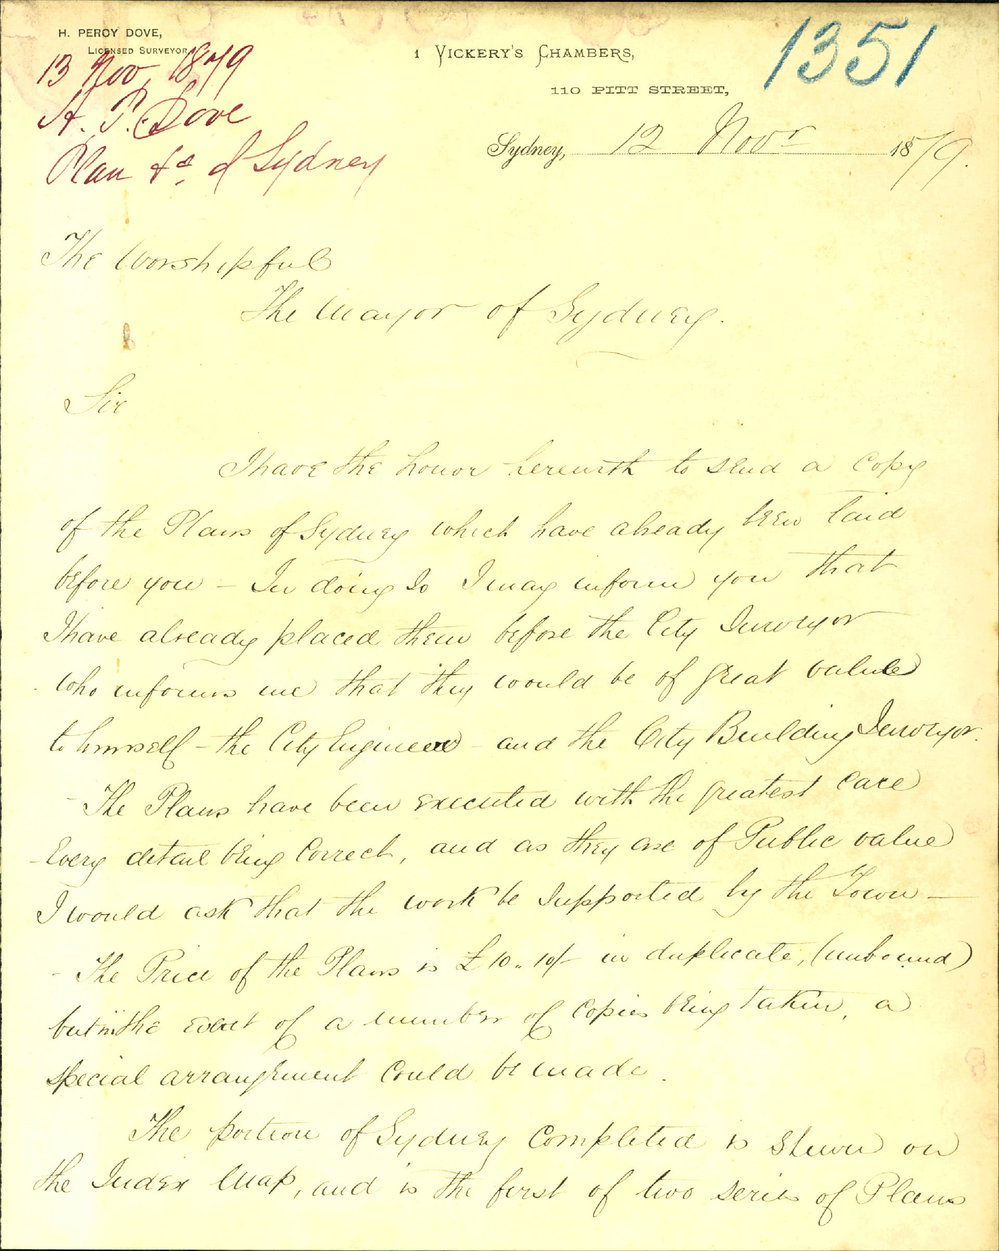 H. PERCY DOVE,
LICENSED SURVEYOR
1 VICKERY'S CHAMBERS,
110 PITT STREET,
1351
13 Nov, 1879
H. P. Dove
Plan &c of Sydney
Sydney, 12 Novr 1879.
The Worshipful
The Mayor of Sydney.
Sir
I have the honor herewith to send a copy
of the Plans of Sydney which have already been laid
before you – In doing so I may inform you that
I have already placed them before the City Surveyor
who informs me that they would be of great value
to himself – the City Engineer – and the City Building Surveyor.
– The Plans have been executed with the greatest care
Every detail being correct, and as they are of Public value
I would ask that the work be supported by the Town –
– The Price of the Plans is £10.10/- in duplicate, (unbound)
but in the event of a number of copies being taken, a
special arrangement could be made.
The portion of Sydney completed is shewn on
the Index Map, and is the first of two series of Plans